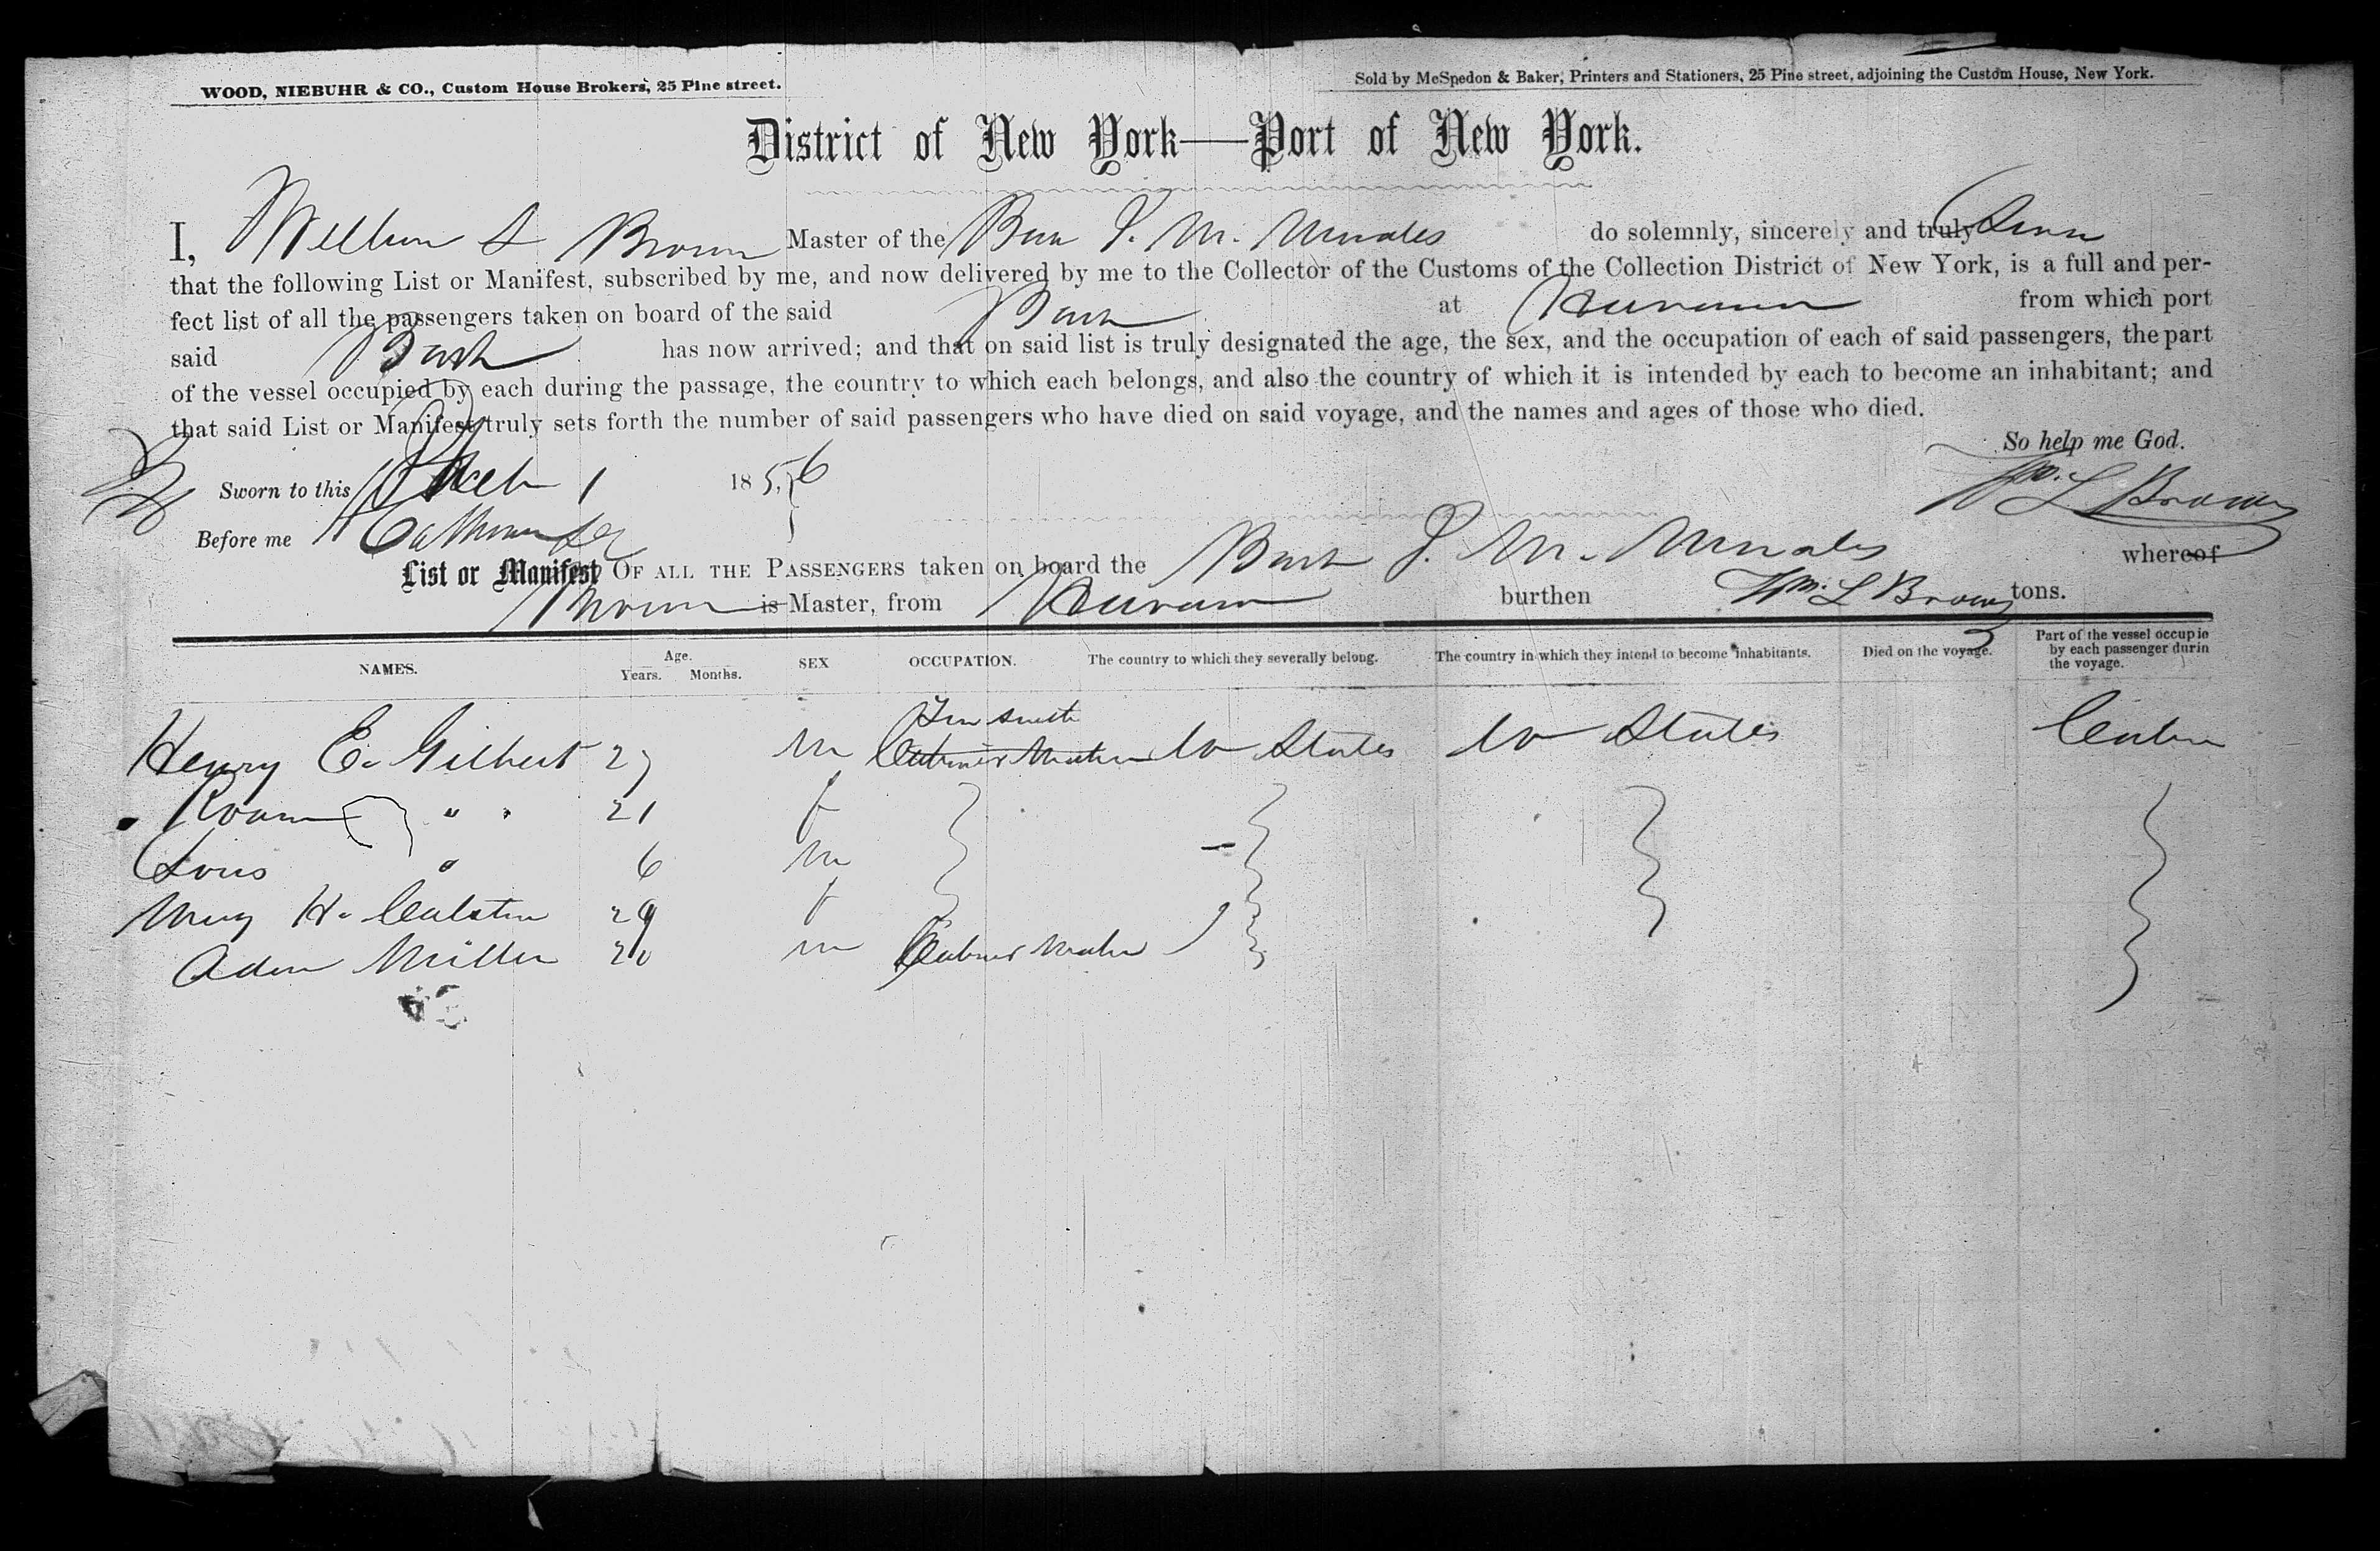 WOOD, NIEBUHR & CO., Custom House Brokers, 25 Pine street.
Sold by McSpedon & Baker, Printers and Stationers, 25 Pine street, adjoining the Custom House, New York.
District of New York—Port of New York.
I, William L Brown Master of the Bark J. M. do solemnly, sincerely and truly Swear
that the following List or Manifest, subscribed by me, and now delivered by me to the Collector of the Customs of the Collection District of New York, is a full and per-
fect list of all the passengers taken on board of the said Bark at Havana from which port
said Bark has now arrived; and that on said list is truly designated the age, the sex, and the occupation of each of said passengers, the part
of the vessel occupied by each during the passage, the country to which each belongs, and also the country of which it is intended by each to become an inhabitant; and
that said List or Manifest truly sets forth the number of said passengers who have died on said voyage, and the names and ages of those who died.
So help me God.
Sworn to this 1 1856
Wm. L Brown
Before me
List or Manifest OF ALL THE PASSENGERS taken on board the Bark J. M. whereof
Brown is Master, from Havana burthen Wm. L Brown tons.
NAMES. Age. Years. Months. SEX OCCUPATION. The country to which they severally belong. The country in which they intend to become inhabitants. Died on the voyage. Part of the vessel occupie by each passenger durin the voyage.
Tin Smith
Henry E. Gilbert 27 m Cabinet Maker U States U States Cabin
" " 21 f
Louis " 6 m
Mary H. 29 f
Adam Miller 20 m Cabinet Maker